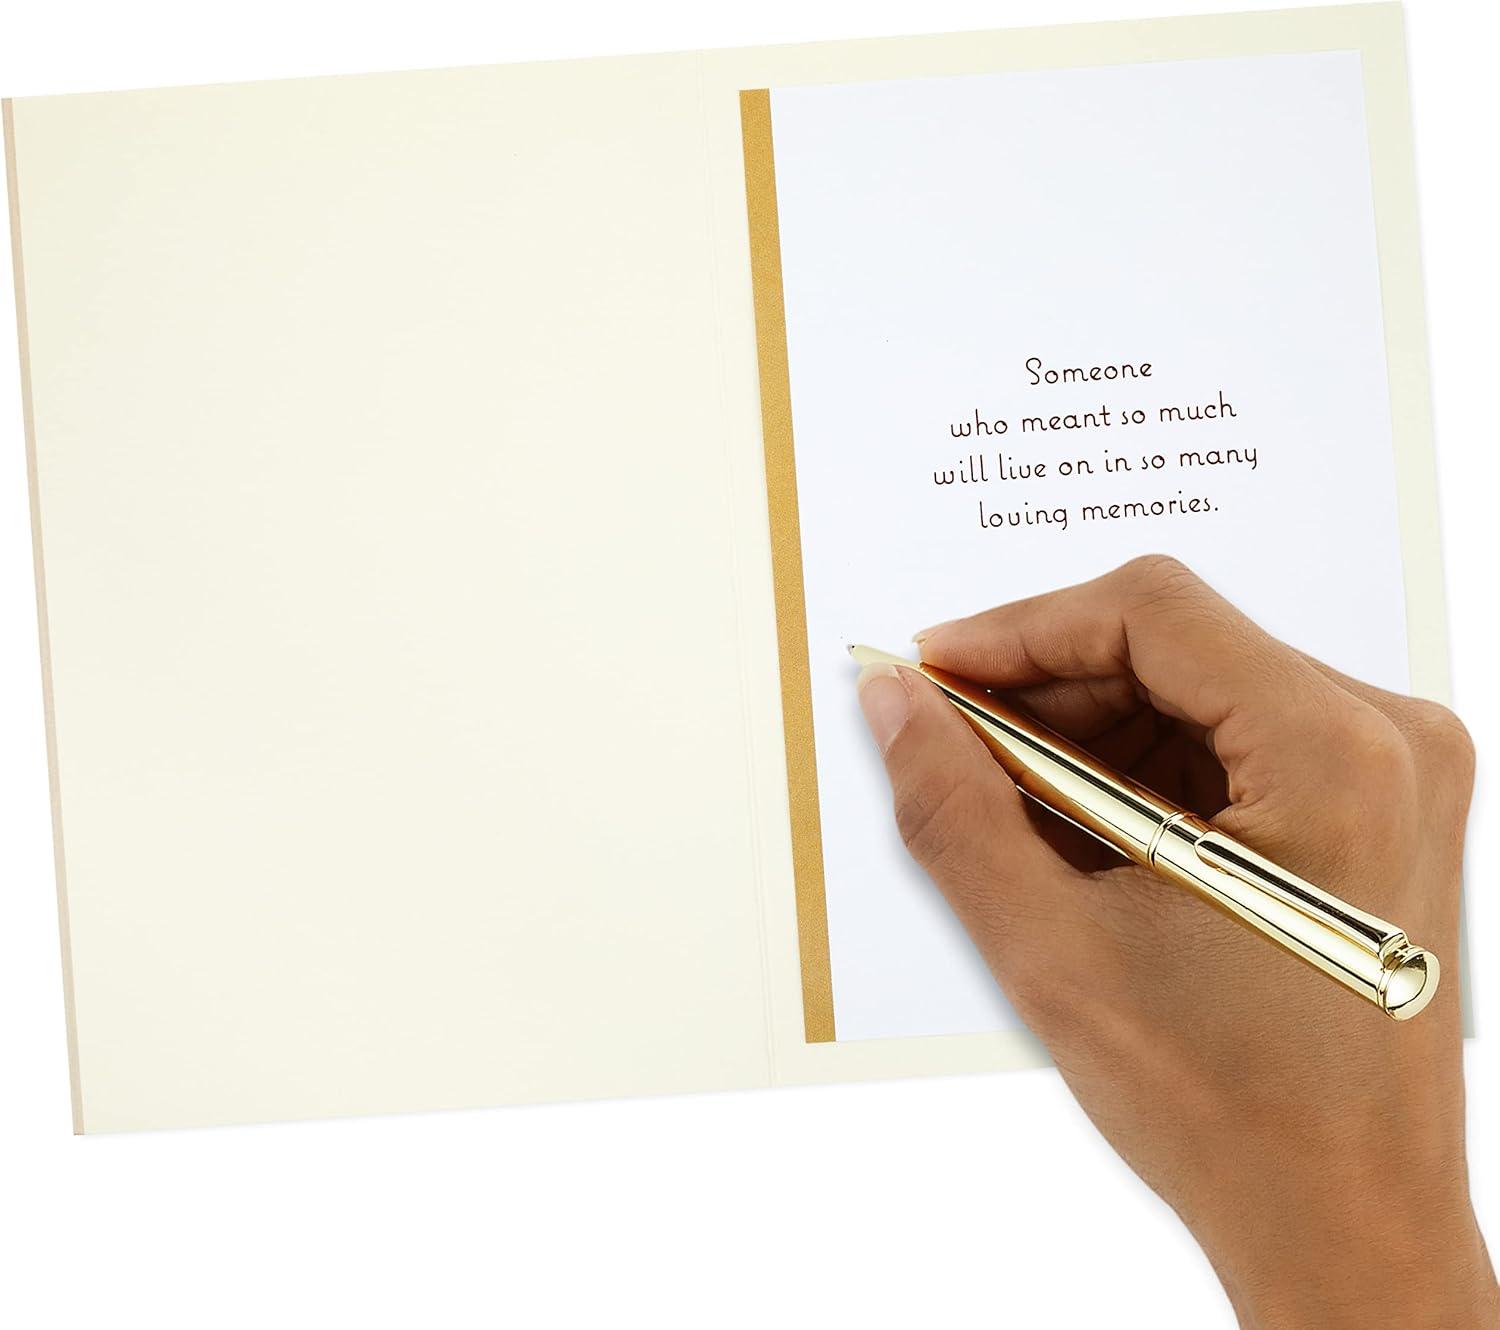 Someone
who meant so much
will live on in so many
loving memories.